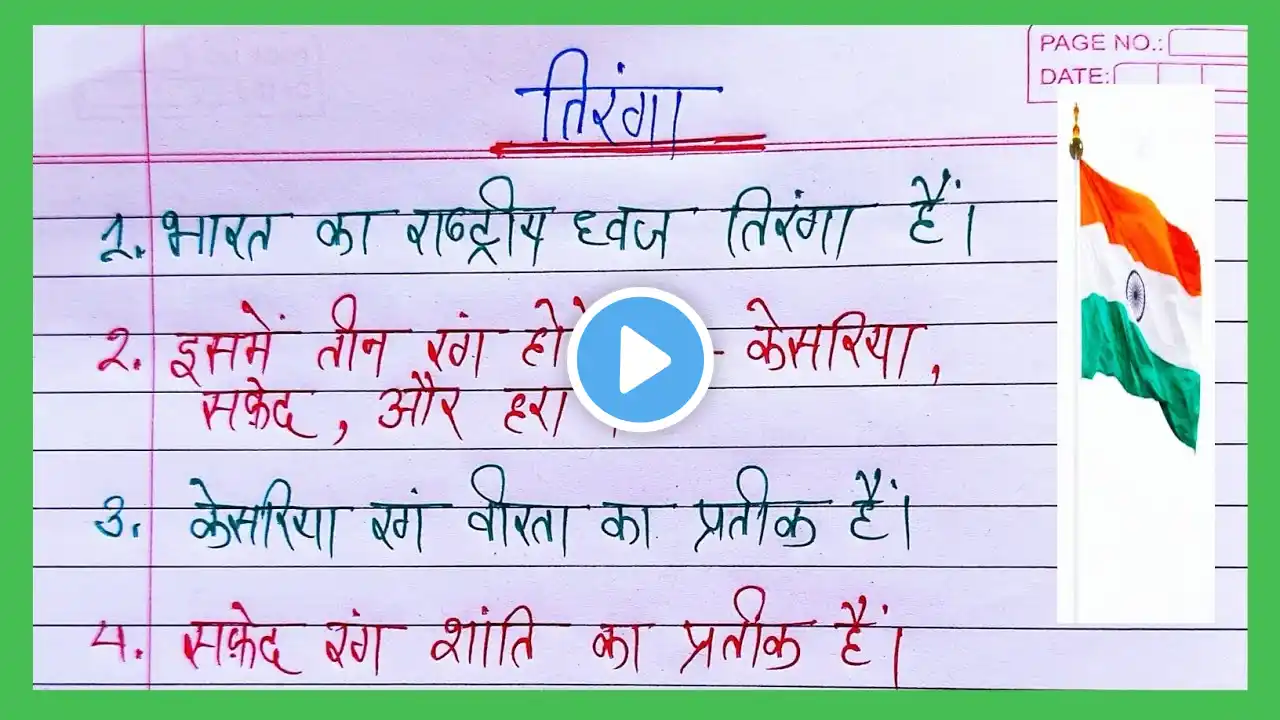 तिरंगा
PAGE NO.:
DATE:
1. भारत का राष्ट्रीय ध्वज तिरंगा हैं।
2. इसमें तीन रंग - केसरिया,
सफ़ेद, और हरा
3. केसरिया रंग वीरता का प्रतीक हैं।
4. सफ़ेद रंग शांति का प्रतीक हैं।